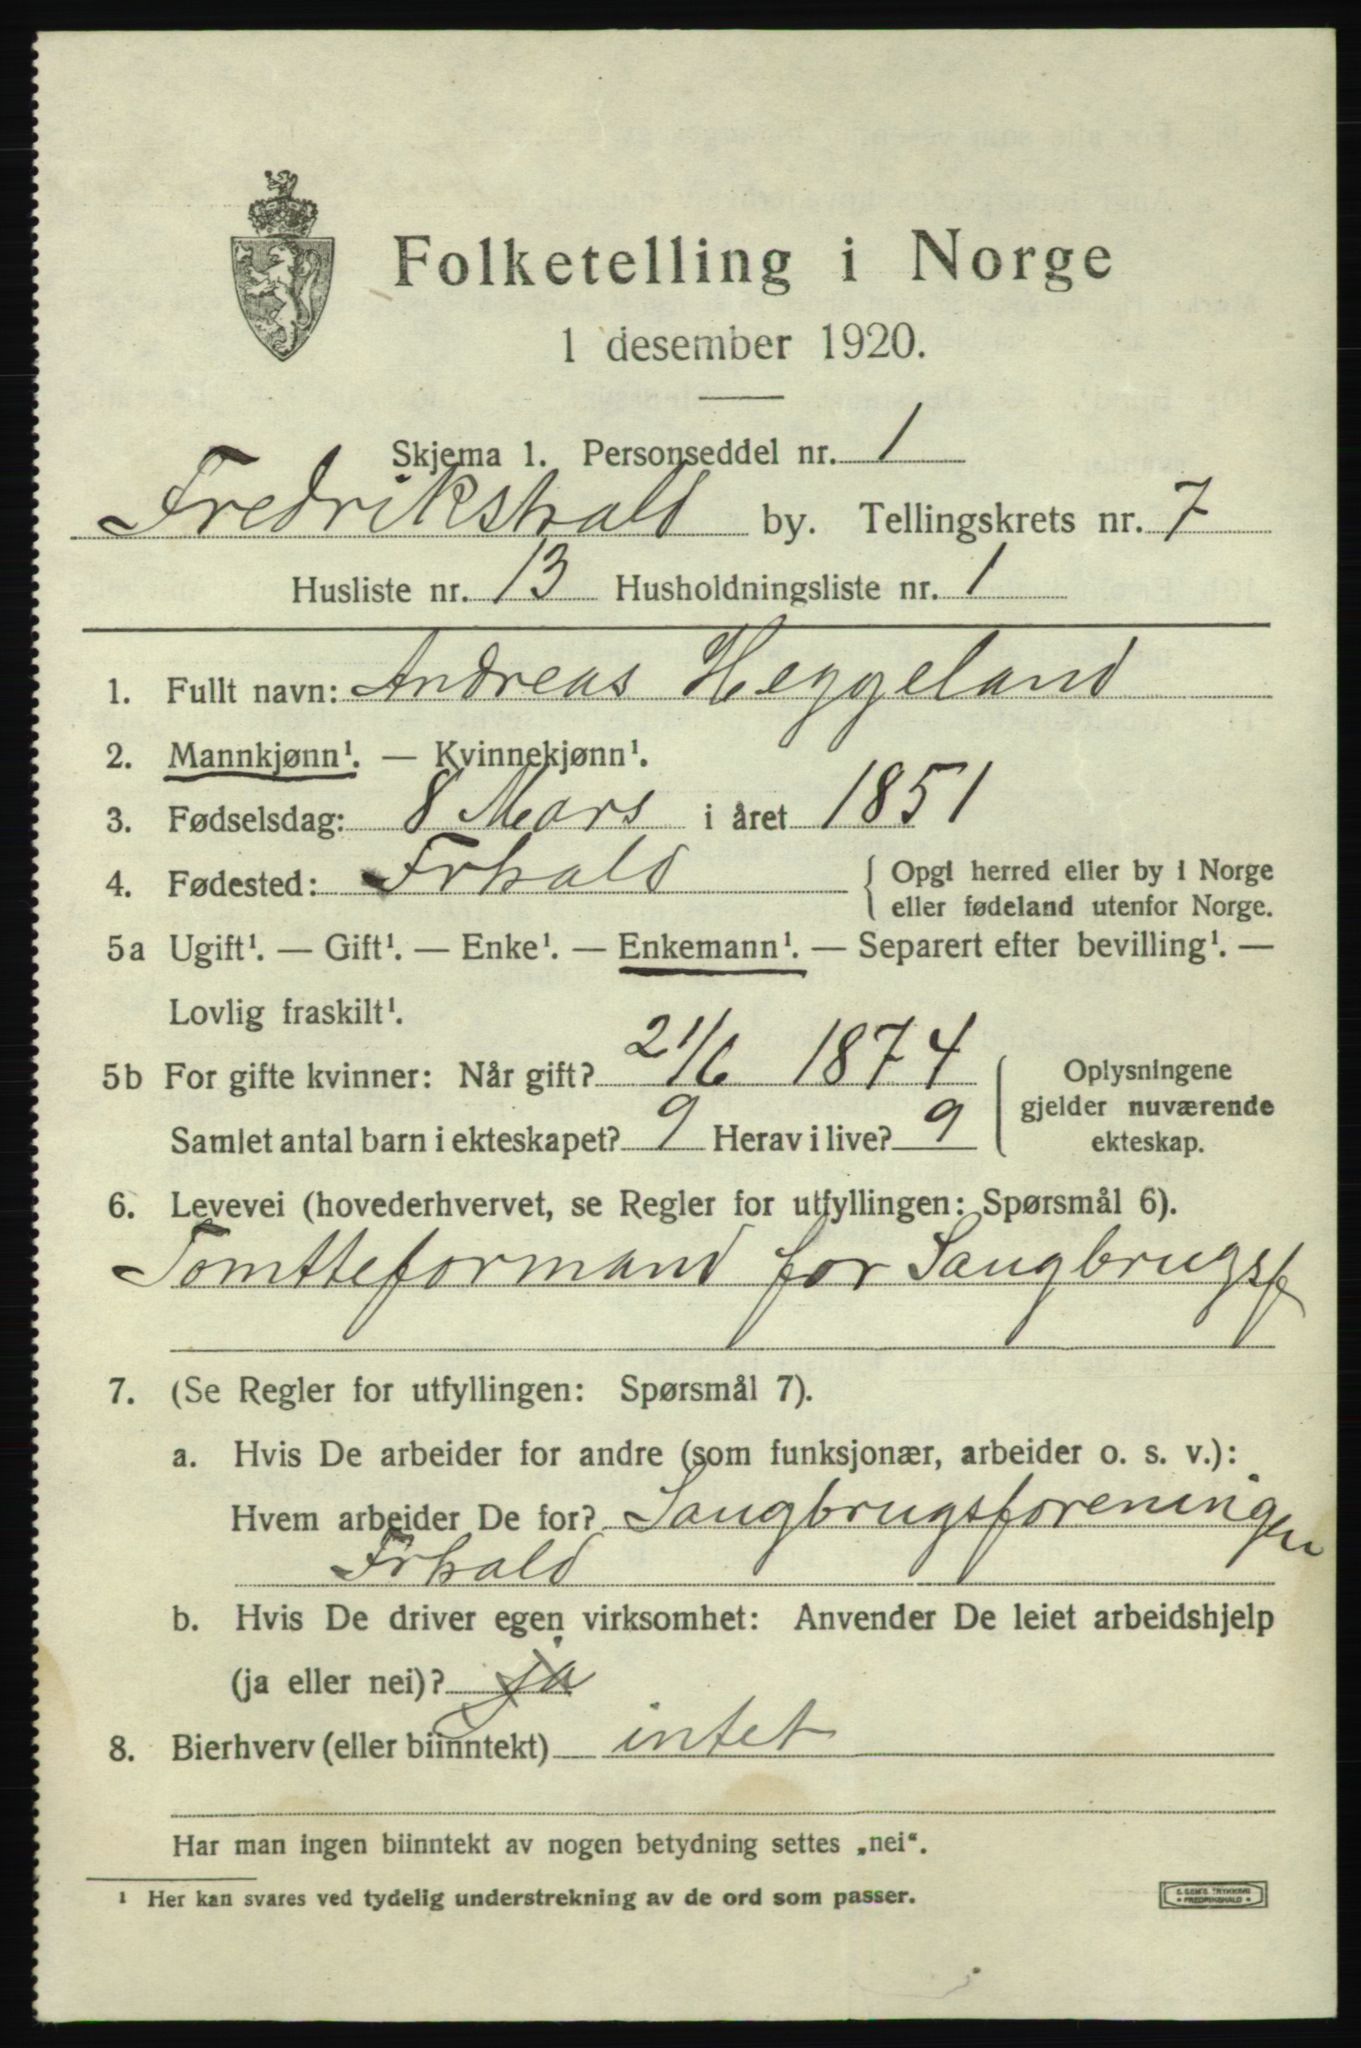 Folketelling i Norge
1 desember 1920.
Skjema 1. Personseddel nr. 1
Fredrikshald by. Tellingskrets nr. 7
Husliste nr. 13 Husholdningsliste nr. 1
1. Fullt navn: Andreas Heggeland
2. Mannkjønn¹. — Kvinnekjønn¹.
3. Fødselsdag: 8 Mars i året 1851
4. Fødested: Frhald { Opgi herred eller by i Norge
eller fødeland utenfor Norge.
5a Ugift¹. — Gift¹. — Enke¹. — Enkemann¹. — Separert efter bevilling¹. —
Lovlig fraskilt¹.
5b For gifte kvinner: Når gift? 21/6 1874 { Oplysningene
gjelder nuværende
Samlet antal barn i ekteskapet? 9 Herav i live? 9 ekteskap.
6. Levevei (hovederhvervet, se Regler for utfyllingen: Spørsmål 6).
Tomtteformand for Saugbrugsf
7. (Se Regler for utfyllingen: Spørsmål 7).
a. Hvis De arbeider for andre (som funksjonær, arbeider o. s. v.):
Hvem arbeider De for? Saugbrugsforeningen
Frhald
b. Hvis De driver egen virksomhet: Anvender De leiet arbeidshjelp
(ja eller nei)? ja
8. Bierhverv (eller biinntekt) intet
Har man ingen biinntekt av nogen betydning settes „nei“.
¹ Her kan svares ved tydelig understrekning av de ord som passer.